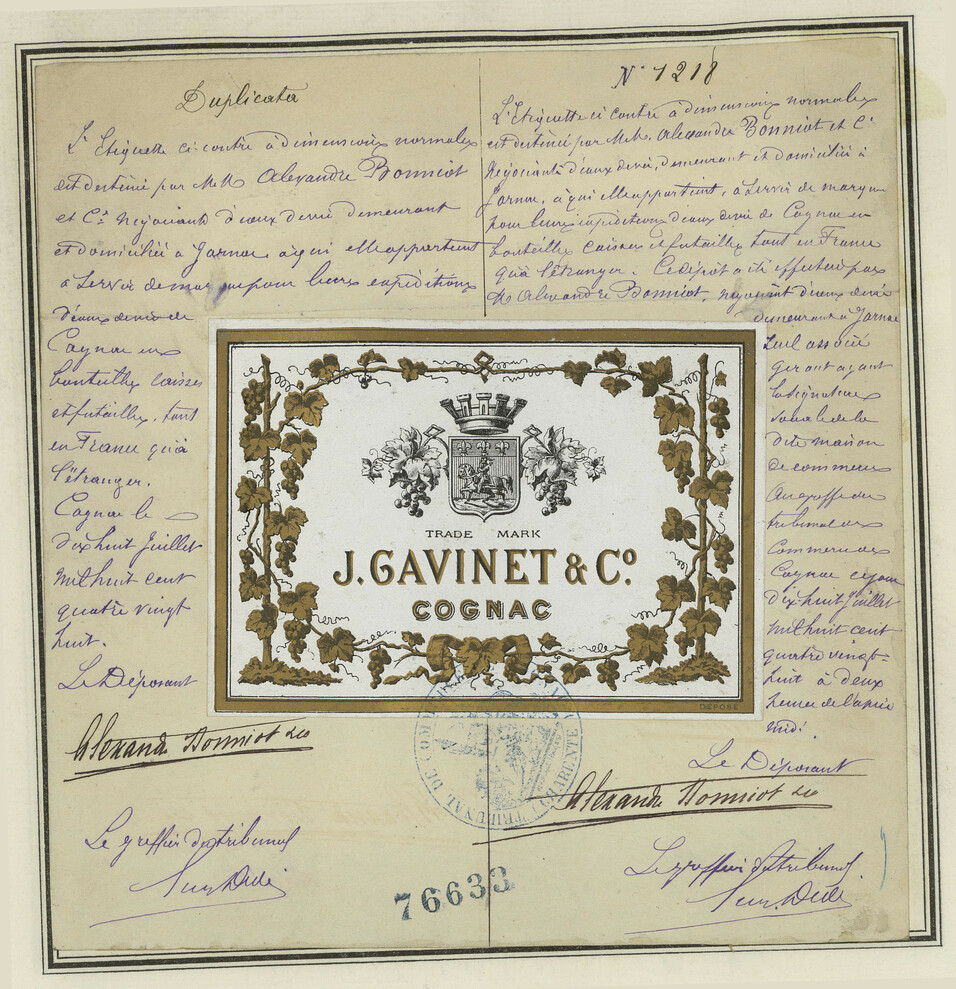 Duplicata
L'Etiquette ci contre à dimensions normales
est destinée par M.M. Alexandre Bonniot
et Cie négociants d'eaux de vie demeurant
et domiciliés à Jarnac à qui elle appartient
à servir de marque pour leurs expéditions
d'eaux de vie de
Cognac en
bouteilles caisses
et futailles, tant
en France qu'à
l'étranger.
Cognac le
dix huit Juillet
mil huit cent
quatre vingt
huit.
Le Déposant
Alexandre Bonniot & Co
Le greffier du tribunal
N° 1218
L'Etiquette ci contre à dimensions normales
est destinée par M.M. Alexandre Bonniot et Cie
négociants d'eaux de vie, demeurant et domiciliés à
Jarnac, à qui elle appartient, à servir de marque
pour leurs expéditions d'eaux de vie de Cognac en
bouteilles caisses et futailles tant en France
qu'à l'étranger. Ce dépôt a été effectué par
M. Alexandre Bonniot, négociant d'eaux de vie
demeurant à Jarnac
seul associé
gérant ayant
la signature
sociale de la
dite maison
de commerce
au greffe du
tribunal de
Commerce de
Cognac ce jour
dix-huit Juillet
mil huit cent
quatre vingt-
huit à deux
heures de l'après
midi.
Le Déposant
Alexandre Bonniot & Co
Le greffier du tribunal
TRADE MARK
J. GAVINET & Co.
COGNAC
DÉPOSÉ
TRIBUNAL DE COMMERCE
CHARENTE
76633